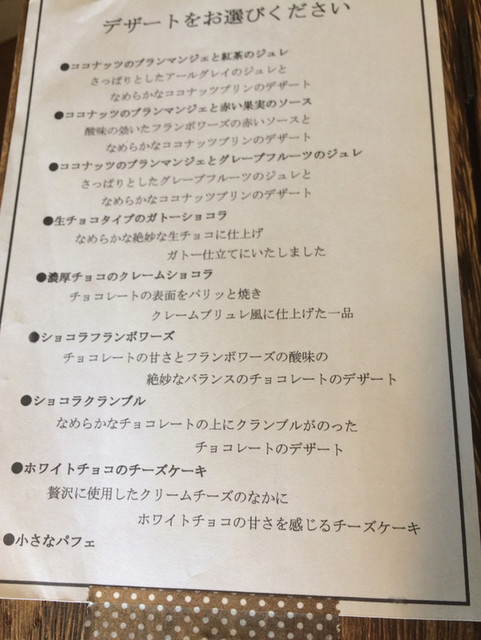 デザートをお選びください
●ココナッツのブランマンジェと紅茶のジュレ
さっぱりとしたアールグレイのジュレと
なめらかなココナッツプリンのデザート
●ココナッツのブランマンジェと赤い果実のソース
酸味の効いたフランボワーズの赤いソースと
なめらかなココナッツプリンのデザート
●ココナッツのブランマンジェとグレープフルーツのジュレ
さっぱりとしたグレープフルーツのジュレと
なめらかなココナッツプリンのデザート
●生チョコタイプのガトーショコラ
なめらかな絶妙な生チョコに仕上げ
ガトー仕立てにいたしました
●濃厚チョコのクレームショコラ
チョコレートの表面をパリッと焼き
クレームブリュレ風に仕上げた一品
●ショコラフランボワーズ
チョコレートの甘さとフランボワーズの酸味の
絶妙なバランスのチョコレートのデザート
●ショコラクランブル
なめらかなチョコレートの上にクランブルがのった
チョコレートのデザート
●ホワイトチョコのチーズケーキ
贅沢に使用したクリームチーズのなかに
ホワイトチョコの甘さを感じるチーズケーキ
●小さなパフェ